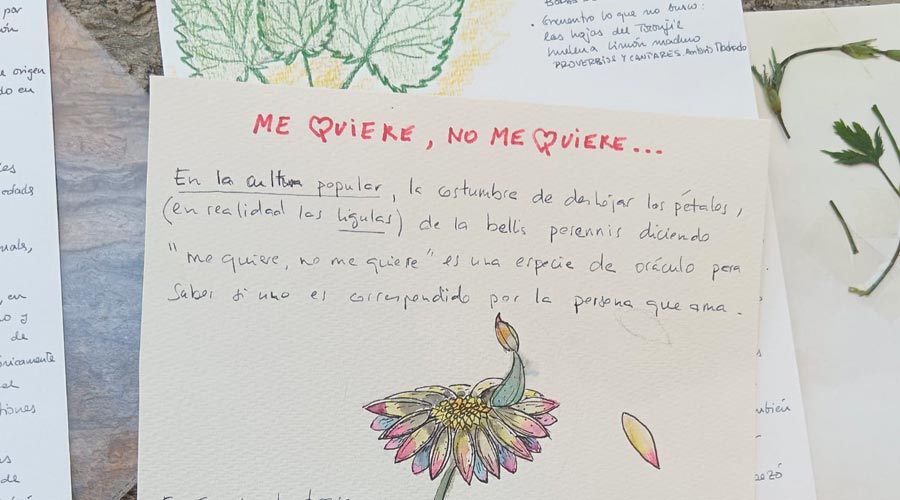 por
origen
do en
edads
en
o y
de
óricamente
el
tiones
as
de
Encuentro lo que no busco:
las hojas del Toronjil
huelen a limón maduro
PROVERBIOS Y CANTARES. Antonio Machado
ME QUIERE, NO ME QUIERE...
En la cultura popular, la costumbre de deshojar los pétalos,
(en realidad las lígulas) de la bellis perennis diciendo
"me quiere, no me quiere" es una especie de oráculo para
saber si uno es correspondido por la persona que ama.